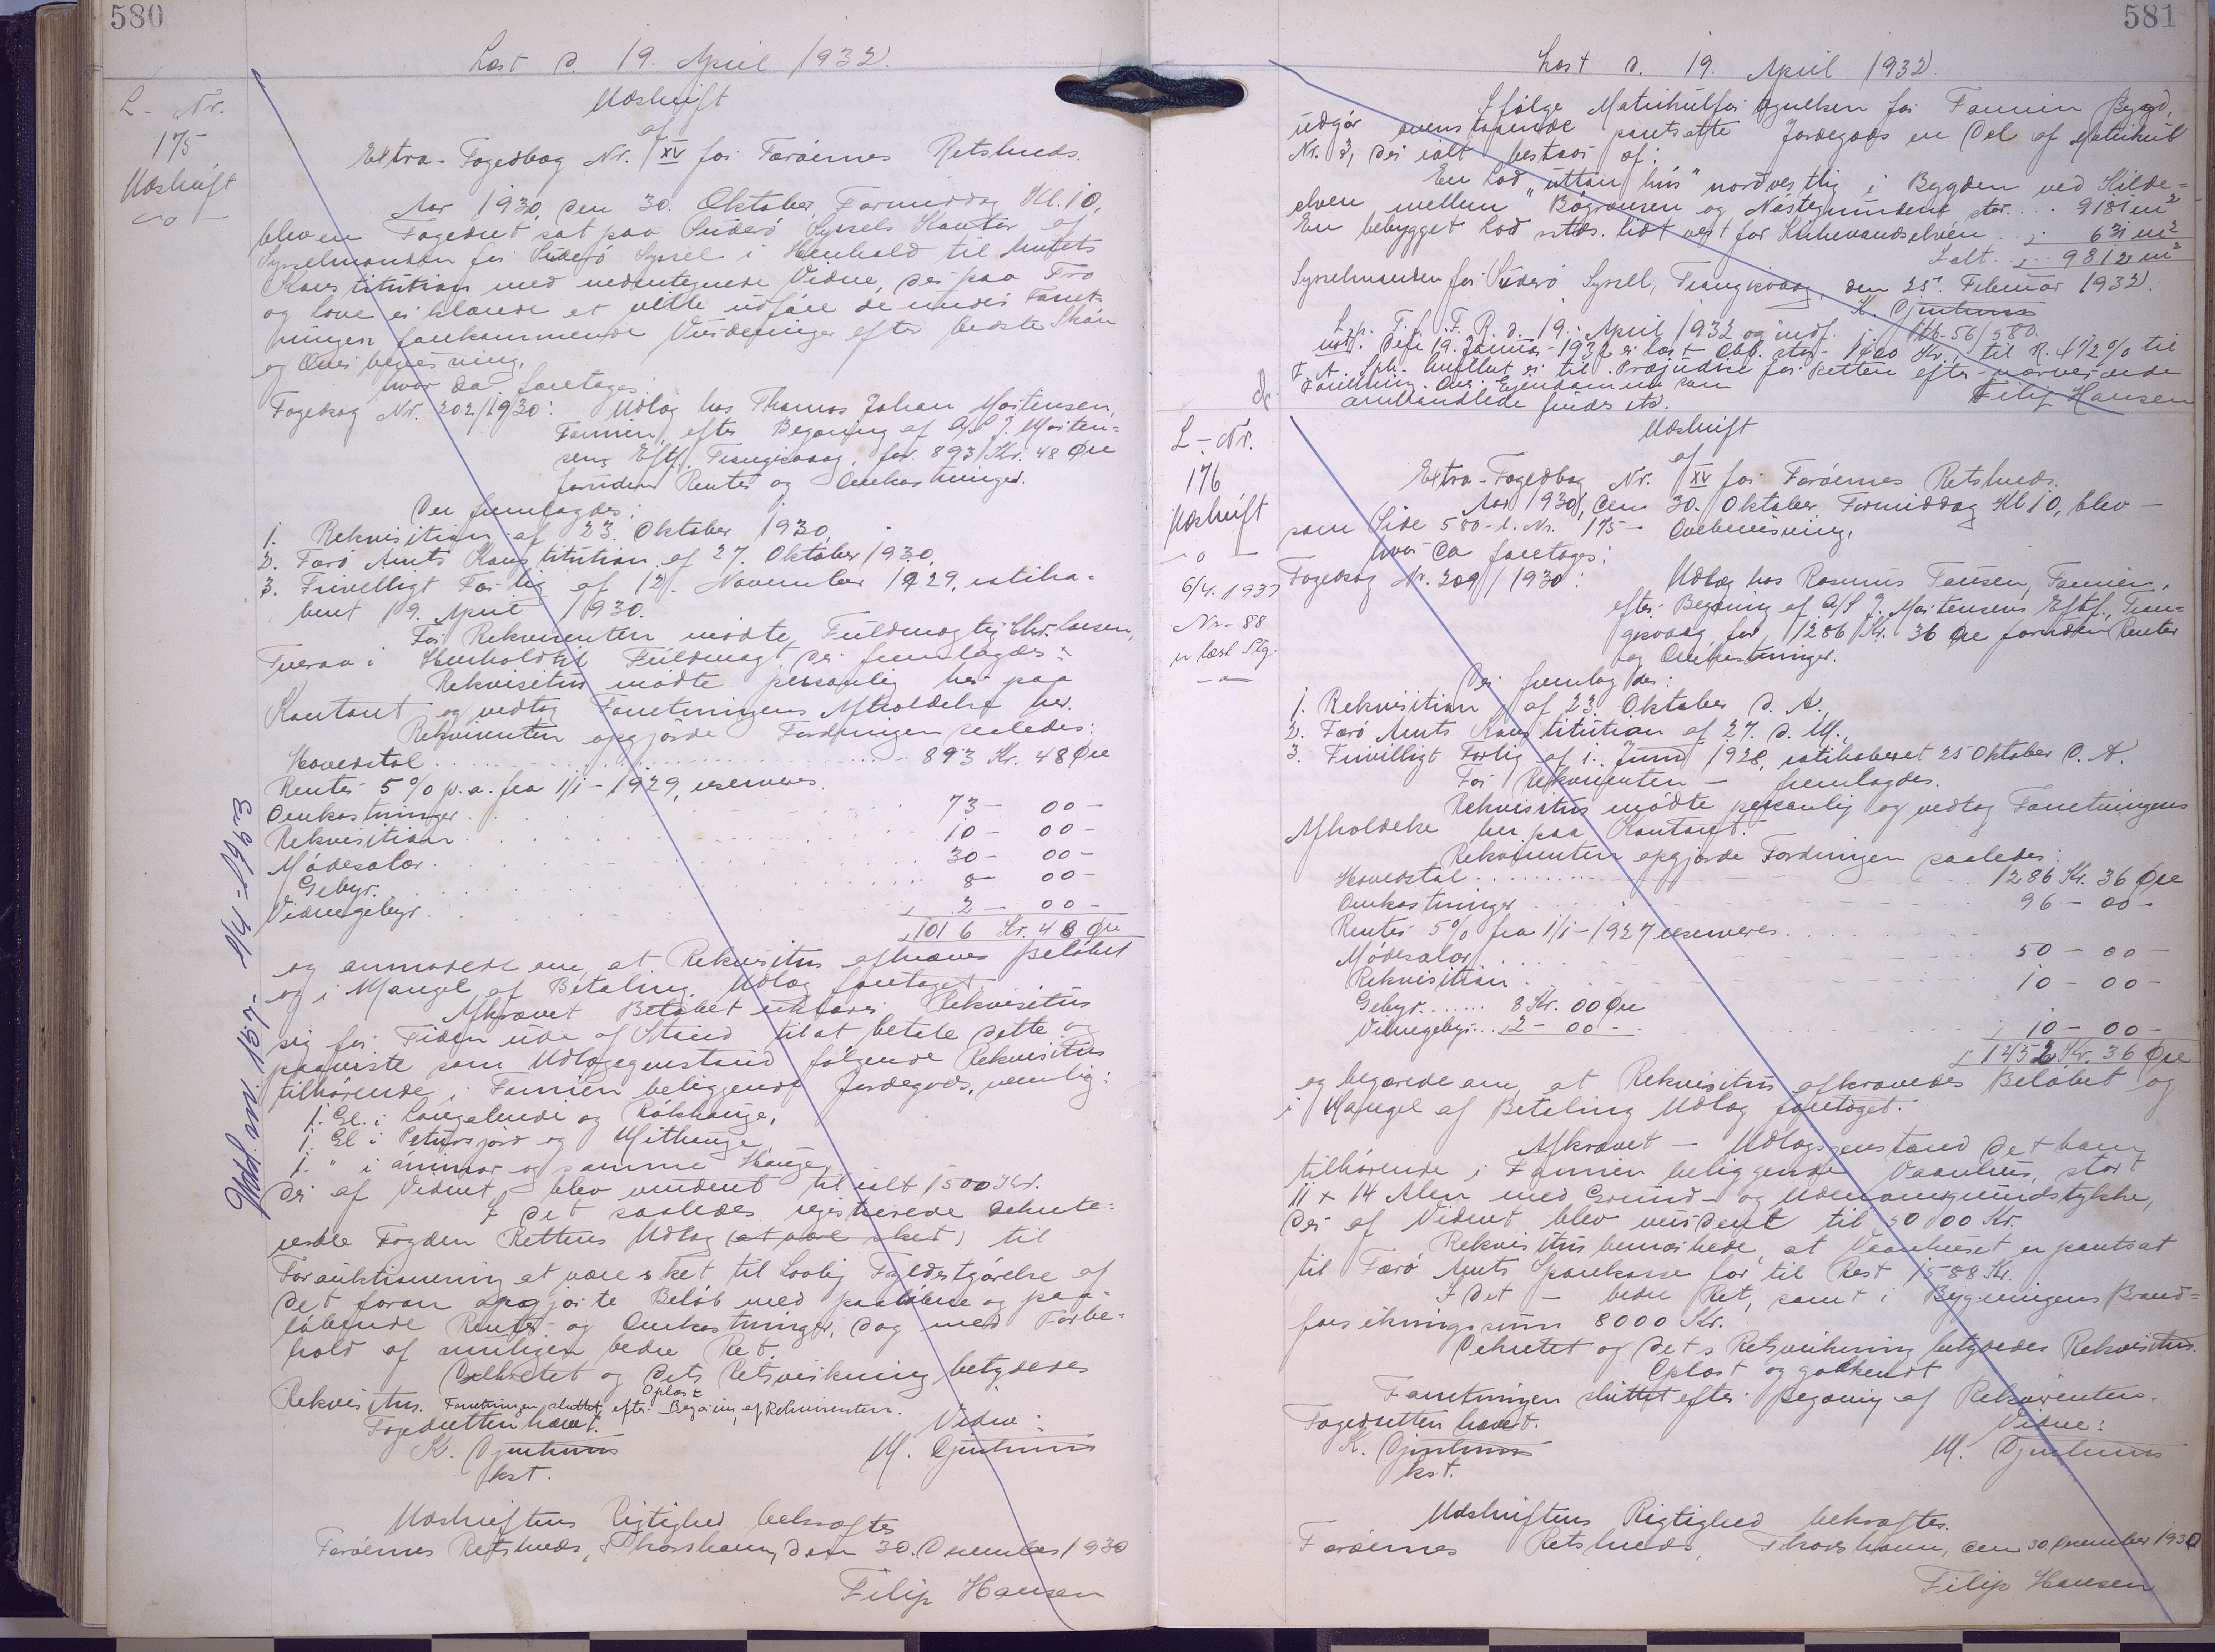 580
Læst d. 19. April 1932.
L - Nr.
175
Udskrift
-o-
Udskrift
af
Extra-Fogedbog Nr. XV for Færøernes Retskreds.
Aar 1930, den 30. Oktober, Formiddag Kl. 10,
blev en Fogedret sat paa Suderø Syssels Kontor af
Sysselmanden for Suderø Syssel i Henhold til Amtets
Konstitution med undertegnede Vidne, der paa Tro
og Love erklærede at ville udføre de under Forret-
ningen forekommende Vurderinger efter bedste Skøn
og Overbevisning,
hvor da foretoges:
Fogedsag Nr. 202/1930: Udlæg hos Thomas Johan Mortensen,
Famien, efter Begæring af A/S J. Morten=
sens Eftf. Trangisvaag, for 893 Kr. 48 Øre
foruden Renter og Omkostninger.
Der fremlagdes:
1. Rekvisition af 23. Oktober 1930,
2. Færø Amts Konstitution af 27. Oktober 1930,
3. Frivilligt Forlig af 12. November 1929, ratiha-
beret 19. April 1930.
For Rekvirenten mødte Fuldmægtig Chr. Larsen,
Tveraa i Henhold til Fuldmagt, der fremlagdes:
Rekvisitus mødte personlig her paa
Kontoret og vedtog Forretningens Afholdelse her.
Rekvirenten opgjorde Fordringen saaledes:
Hovedstol 893 Kr. 48 Øre
Renter 5% p.a. fra 1/1-1929, reserveres.
Omkostninger 73 - 00 -
Rekvisition 10 - 00 -
Mødesalær 30 - 00 -
Gebyr 8 - 00 -
Vidnegebyr 2 - 00 -
1016 Kr. 48 Øre
og anmodede om, at Rekvisitus afkræves Beløbet
og i Mangel af Betaling Udlæg foretaget.
Afkrævet Beløbet erklærer Rekvisitus
sig for Tiden ude af Stand til at betale dette og
paaviste som Udlægsgenstand følgende Rekvisitus
tilhørende i Famien beliggende Jordegods, nemlig:
1. Gl. i Langalendi og Rókhauge,
1. Gl i Petursjørd og Mithauge
1. " i ámmar og samme Hauge,
der af Vidnet blev vurderet til ialt 1500 Kr.
I det saaledes registrerede dekrete=
rede Fogden Rettens Udlæg (at være sket) til
Forauktionering at være sket til lovlig Fyldestgørelse af
det foran opgjorte Beløb med paaløbne og paa-
løbende Renter og Omkostninger, dog med Forbe-
hold af muligen bedre Ret.
Dekretet og dets Retsvirkning betydedes
Rekvisitus. Forretningen sluttet efter Begæring af Rekvirenten.
Oplæst
Fogedretten hævet.
Vidne:
K. Djurhuus
M. Djurhuus
kst.
Udskriftens Rigtighed bekræftes
Færøernes Retskreds, Thorshavn, den 30. December 1930
Filip Hansen
Modd. nr. 157 - 1/4-1923
581
Læst d. 19. April 1932.
Ifølge Matrikulfortegnelsen for Famien Bygd,
udgør ovenstaaende pantsatte Jordegods en Del af Matrikul
Nr. 3, der ialt bestaar af:
En Lod "uttan hús" nordvestlig i Bygden ved Hilde=
elven mellem Bøgrænsen og Nástegrundene stor 9181 m²
En bebygget Lod sstds. lidt vest for Kirkevandselven 631 m²
Ialt 9812 m²
Sysselmanden for Suderø Syssel, Trangisvaag, den 25. Februar 1932.
K. Djurhuus
Lp. T. f. F. R. d. 19. April 1932 og indf. Ptb. 56/580.
not. Den 19. Januar 1932 er læst Obl. stor 1400 Kr. til R. 4 1/2 % til
F. A. Spk. hvilket er til Præjudice for Retten efter nærværende
Forretning. Over Ejendommene som
omhandlede findes itv.
Filip Hansen
L - Nr.
176
Udskrift
-o-
6/4. 1937
Nr. 88
er læst Skg.
-o-
Udskrift
af
Extra-Fogedbog Nr. XV for Færøernes Retskreds.
Aar 1930, den 30. Oktober, Formiddag Kl 10, blev -
som Side 580 - L. Nr. 175 - Overbevisning,
hvor da foretoges:
Fogedsag Nr. 209/1930: Udlæg hos Rasmus Tausen, Famien,
efter Begæring af A/S J. Mortensens Eftf., Tran=
gisvaag, for 1286 Kr. 36 Øre foruden Renter
og Omkostninger.
Der fremlagdes:
1. Rekvisition af 23. Oktober d. A.,
2. Færø Amts Konstitution af 27. d. M.,
3. Frivilligt Forlig af 1. Juni 1928, ratihaberet 25 Oktober d. A.
For Rekvirenten - fremlagdes.
Rekvisitus mødte personlig og vedtog Forretningens
Afholdelse her paa Kontoret.
Rekvirenten opgjorde Fordringen saaledes:
Hovedstol 1286 Kr. 36 Øre
Omkostninger 96 - 00 -
Renter 5% fra 1/1-1927 reserveres.
Mødesalær 50 - 00 -
Rekvisition 10 - 00 -
Gebyr 8 Kr. 00 Øre
Vidnegebyr 2 - 00 - 10 - 00 -
1452 Kr. 36 Øre
og begærede om, at Rekvisitus afkrævedes Beløbet og
i Mangel af Betaling Udlæg foretaget.
Afkrævet - Udlægsgenstand det ham
tilhørende i Famien beliggende Vaanhus, stort
11 x 14 Alen med Grund- og Udenomsgrundstykke,
der af Vidnet blev vurderet til 5000 Kr.
Rekvisitus bemærkede, at Vaanhuset er pantsat
til Færø Amts Sparekasse for til Rest 1588 Kr.
I det - bedre Ret, samt i Bygningens Brand=
forsikringssum 8000 Kr.
Dekretet og dets Retsvirkning betydedes Rekvisitus.
Oplæst og godkendt
Forretningen sluttet efter Begæring af Rekvirenten.
Fogedretten hævet.
Vidne:
K. Djurhuus
M. Djurhuus
kst.
Udskriftens Rigtighed bekræftes.
Færøernes Retskreds, Thorshavn, den 30. December 1930
Filip Hansen